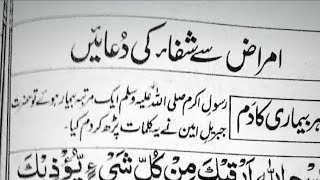 امراض سے شفاء کی دُعائیں
ہر بیماری کا دَم
رسول اکرم صلی اللہ علیہ وسلم ایک مرتبہ بیمار ہوئے تو حضرت
جبریل امین نے یہ کلمات پڑھ کر دم کیا۔
اللہِ اَرْقِيْكَ مِنْ كُلِّ شَیْءٍ يُؤْذِيْكَ